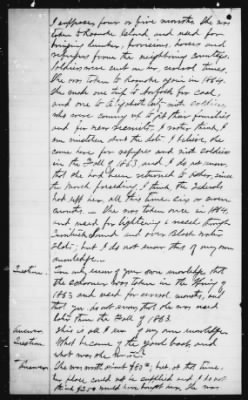 I suppose, four or five months. She was
taken to Roanoke Island and used for
bringing lumber, provisions, horses and
refugees from the neighboring counties.
Soldiers were sent in her several times.
She was taken to Roanoke again in 1864.
She made one trip to Norfolk for coal,
and one to with soldiers
who were coming up to get their families
and for new recruits, I rather think. I
am mistaken about the date. I believe, she
came here for refugees and with soldiers
in the Fall of 1863 and I do not know
that she had been returned to before, since
the March preceding. I think the Federals
kept all this time, six or seven
months. She was taken over in 1864,
and used for lightering a vessel through
Sound and over Black Water
but I do not know that of my own
knowledge.
Question. You only know of your own knowledge that
the schooner was taken in the Spring of
1863 and used for several months, and
that you do not know that she was used
later than the Fall of 1863.
Answer. This is all I know of my own knowledge.
Question. What became of the good boat, and
what was she worth?
Answer. She was worth about $80; but at that time
her place could not be supplied and I do not
think $200 would have bought her. She was